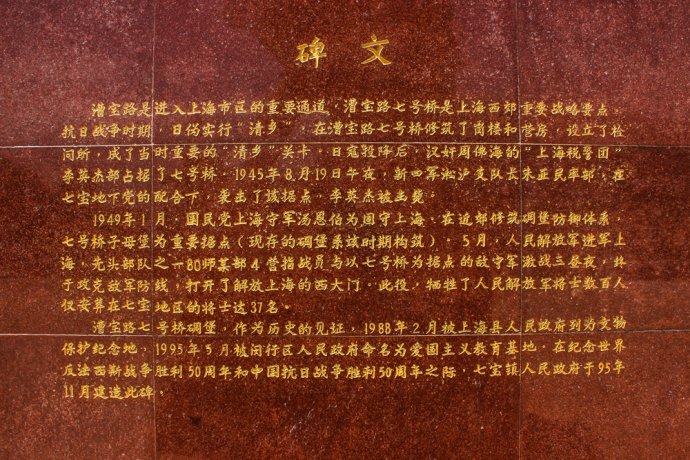 碑文
漕宝路是进入上海市区的重要通道，漕宝路七号桥是上海西郊重要战略要点。
抗日战争时期，日伪实行“清乡”，在漕宝路七号桥修筑了岗楼和营房，设立了检
问所，成了当时重要的“清乡”关卡。日寇投降后，汉奸周佛海的“上海税警团”
李英杰部占据了七号桥。1945年8月19日午夜，新四军淞沪支队长朱亚民率部，在
七宝地下党的配合下，袭击了该据点，李英杰被击毙。
1949年1月，国民党上海守军汤恩伯为固守上海，在近郊修筑碉堡防御体系，
七号桥子母堡为重要据点（现存的碉堡系该时期构筑）。5月，人民解放军进军上
海，先头部队之一80师某部4营指战员与以七号桥为据点的敌守军激战三昼夜，终
于攻克敌军防线，打开了解放上海的西大门。此役，牺牲了人民解放军将士数百人，
仅安葬在七宝地区的将士达37名。
漕宝路七号桥碉堡，作为历史的见证，1988年2月被上海县人民政府列为文物
保护纪念地，1995年5月被闵行区人民政府命名为爱国主义教育基地，在纪念世界
反法西斯战争胜利50周年和中国抗日战争胜利50周年之际，七宝镇人民政府于95年
11月建造此碑。